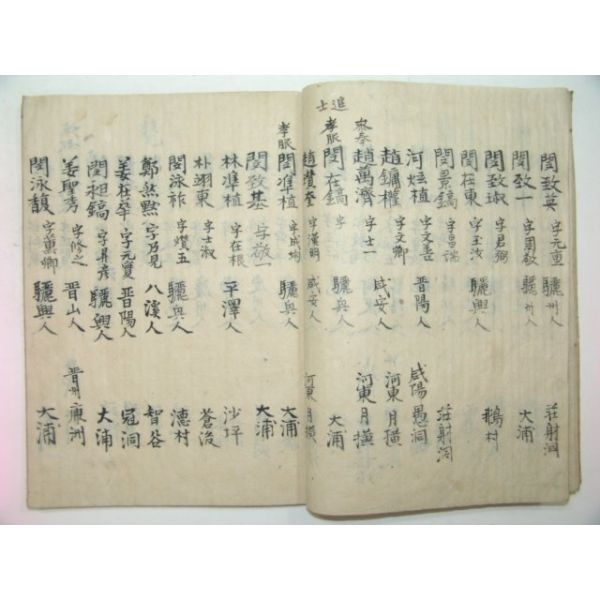 閔致英 字元重 驪州人 莊射洞
閔致一 字周敬 驪州人 大浦
閔致琡 字君弼
閔在東 字玉汝 驪興人 鵝村
閔景鎬 字昌瑞 莊射洞
河炫植 字文善 晋陽人 咸陽愚洞
趙鏞權 字文卿 咸安人 河東月橫
趙萬濟 字士一 河東月橫
進士 孝服 閔在鎬 字 驪興人 大浦
趙 字漢明 咸安人 河東月橫
孝服 閔準植 字成均 驪興人 大浦
閔致基 字敬一 大浦
林準植 字在根 平澤人 沙坪
朴翊東 字士淑
閔泳祚 字瓚五 驪興人 德村
鄭然黙 字乃見 八溪人 智谷
姜在 字元實 晋陽人 冠洞
閔祖鎬 驪興人 大浦
姜聖秀 字修之 晋山人 晋州 洲
閔泳馥 字薫卿 驪興人 大浦